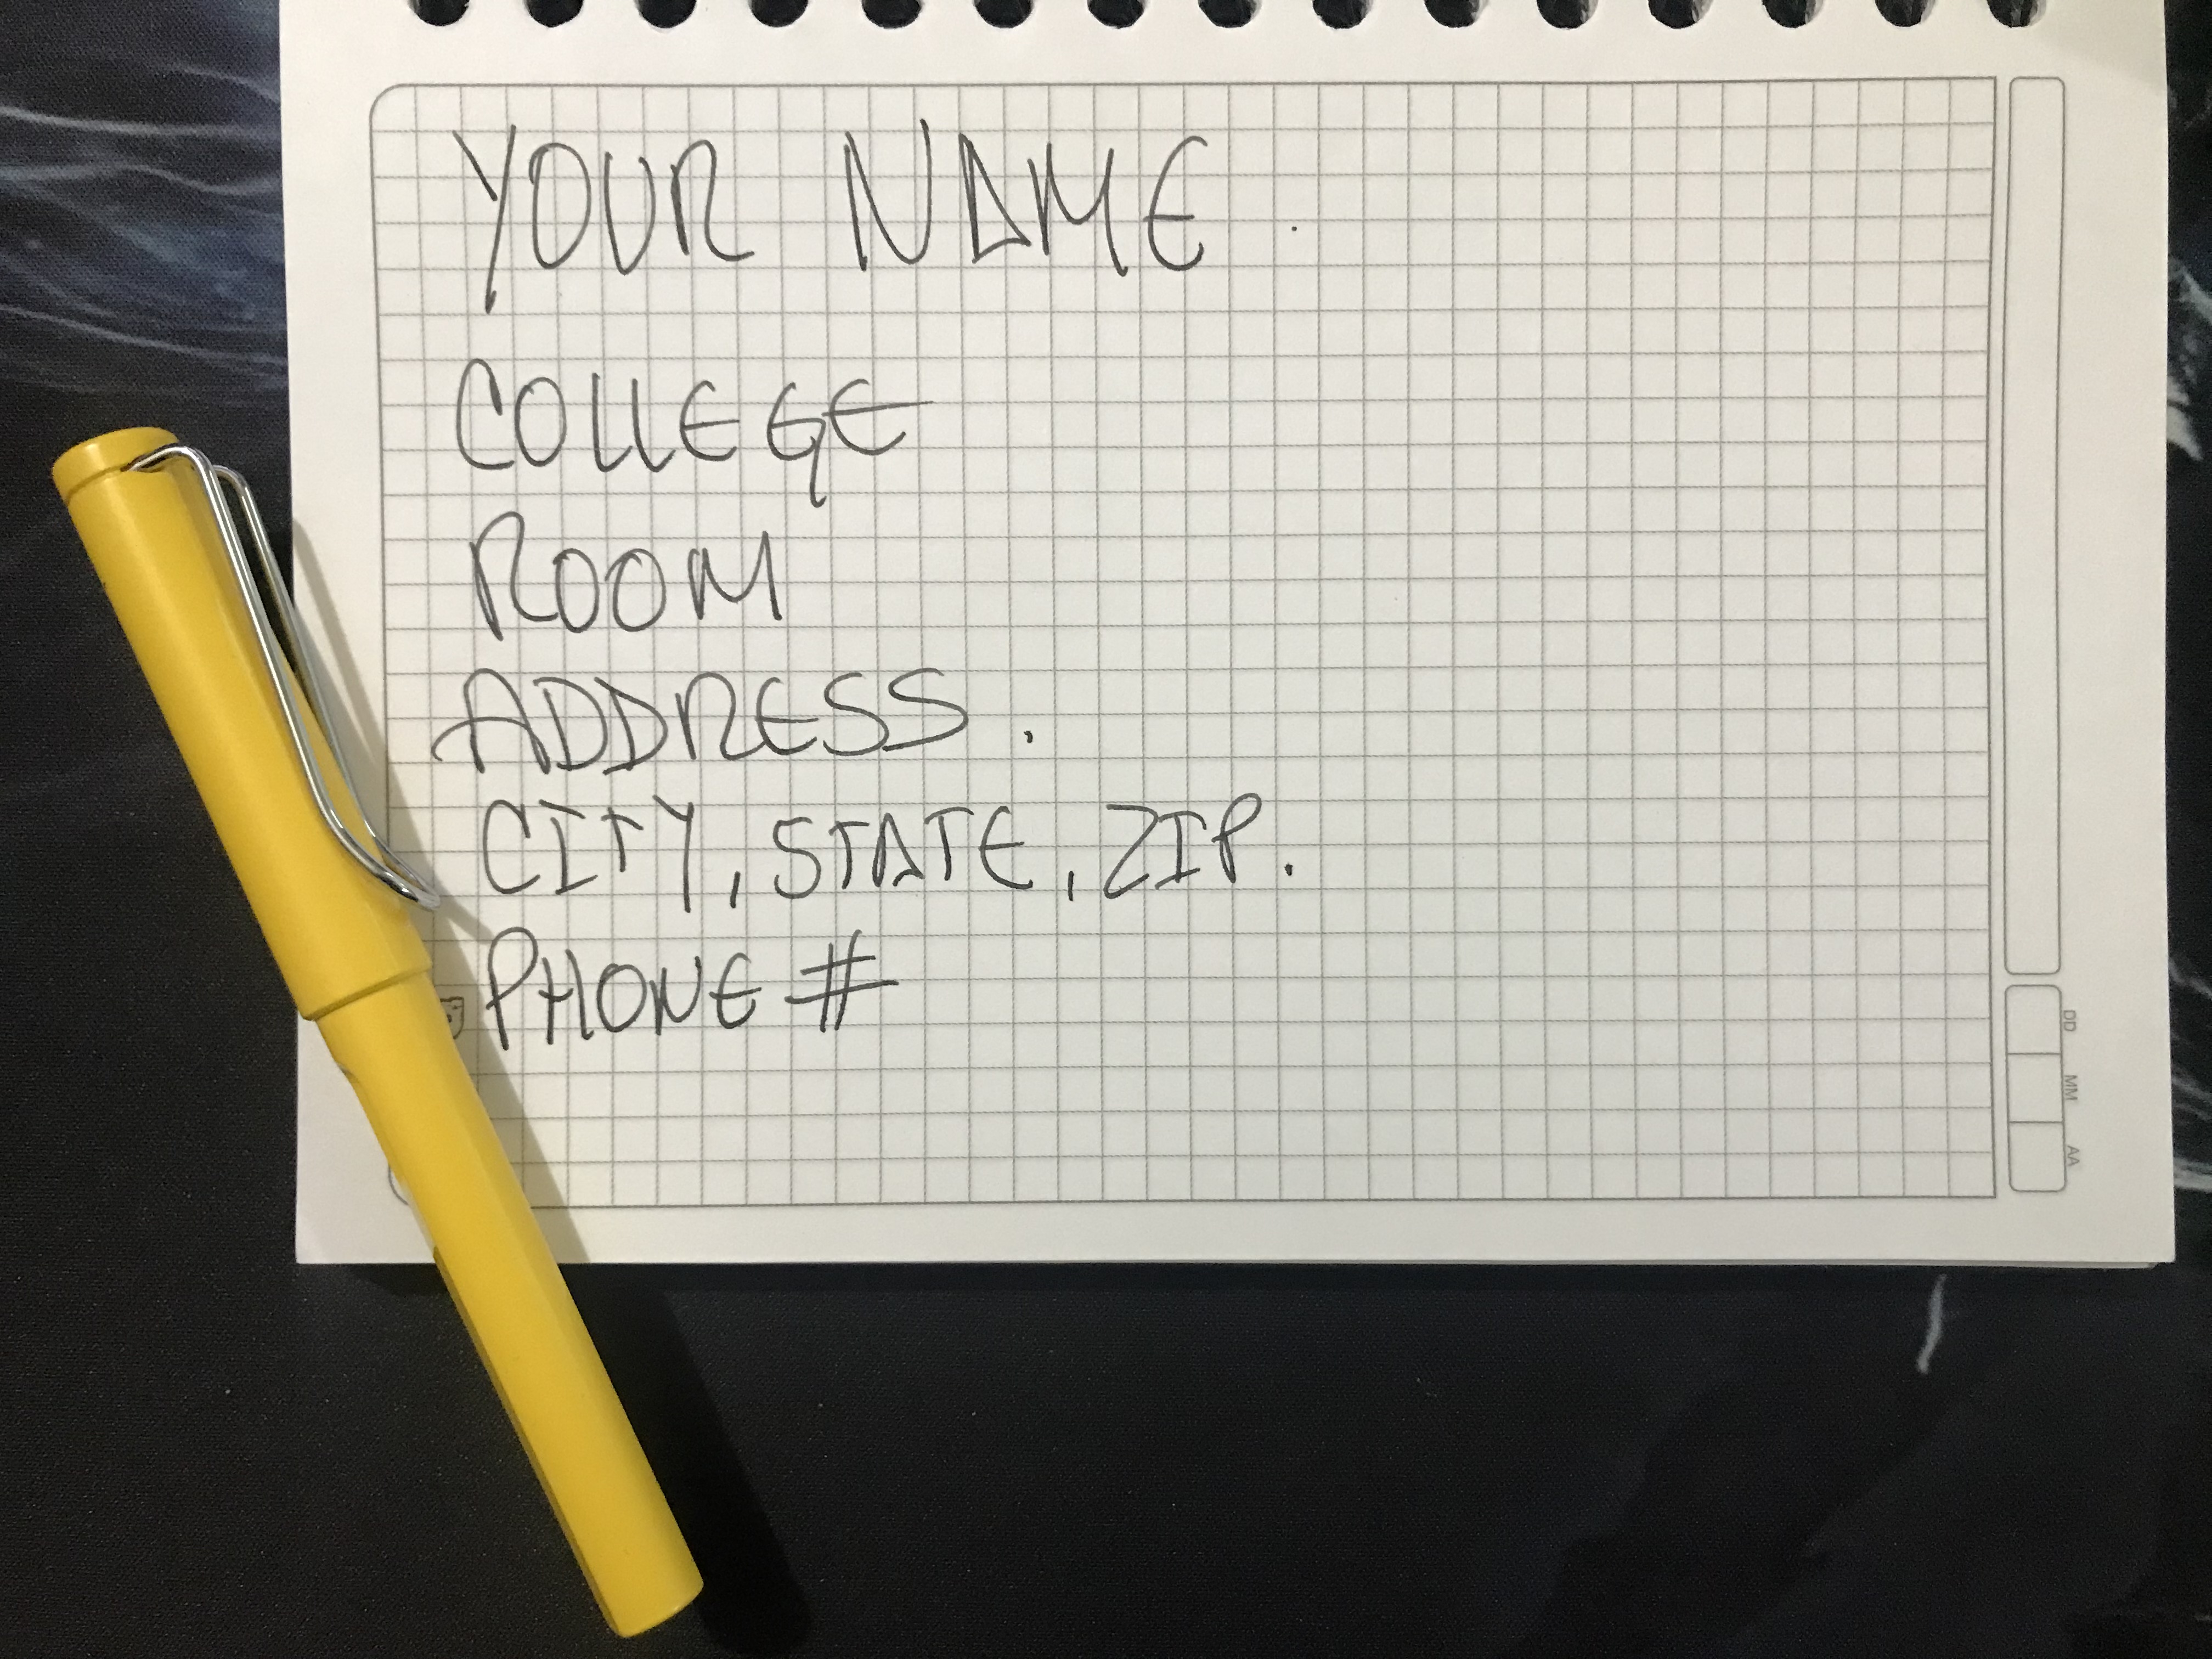 YOUR NAME.
COLLEGE
ROOM
ADDRESS.
CITY, STATE, ZIP.
PHONE #
DD
MM
AA